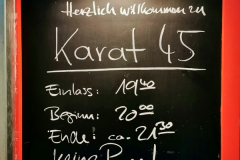 Herzlich willkommen zu
Karat 45
Einlass: 19⁴⁰
Beginn: 20⁰⁰
Ende: ca. 21³⁰
keine